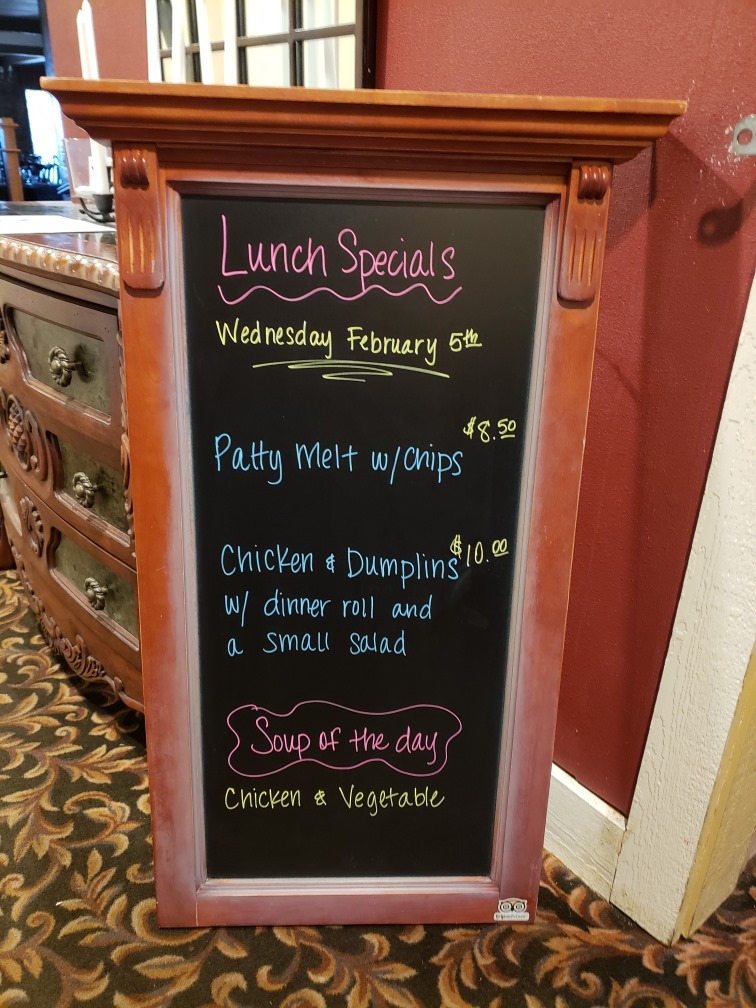 Lunch Specials
Wednesday February 5th
$8.50
Patty Melt w/chips
$10.00
Chicken & Dumplins
w/ dinner roll and
a small salad
Soup of the day
Chicken & Vegetable